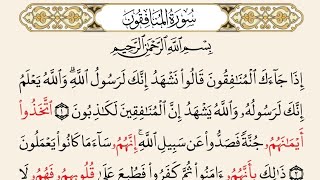 سُورَةُ المُنَافِقُونَ
بِسْمِ اللَّهِ الرَّحْمَنِ الرَّحِيمِ
إِذَا جَاءَكَ الْمُنَافِقُونَ قَالُوا نَشْهَدُ إِنَّكَ لَرَسُولُ اللَّهِ وَاللَّهُ يَعْلَمُ
إِنَّكَ لَرَسُولُهُ وَاللَّهُ يَشْهَدُ إِنَّ الْمُنَافِقِينَ لَكَاذِبُونَ ١ اتَّخَذُوا
أَيْمَانَهُمْ جُنَّةً فَصَدُّوا عَن سَبِيلِ اللَّهِ إِنَّهُمْ سَاءَ مَا كَانُوا يَعْمَلُونَ ٢
ذَلِكَ بِأَنَّهُمْ ءَامَنُوا ثُمَّ كَفَرُوا فَطُبِعَ عَلَى قُلُوبِهِمْ فَهُمْ لَا